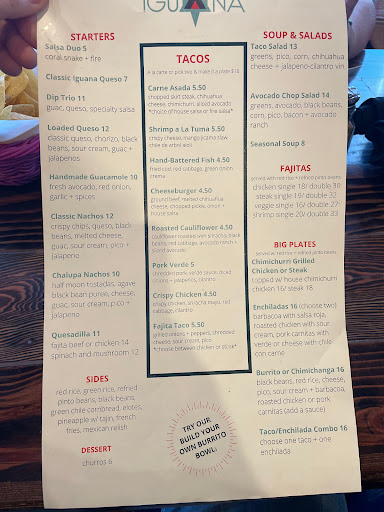 IGUANA
STARTERS
Salsa Duo 5
coral snake + fire
Classic Iguana Queso 7
Dip Trio 11
guac, queso, specialty salsa
Loaded Queso 12
classic queso, chorizo, black
beans, sour cream, guac +
jalapenos
Handmade Guacamole 10
fresh avocado, red onion,
garlic + spices
Classic Nachos 12
crispy chips, queso, black
beans, melted cheese,
guac, sour cream, pico +
jalapeno
Chalupa Nachos 10
half moon tostadas, agave
black bean puree, cheese,
guac, sour cream, pico +
jalapeno
Quesadilla 11
fajita beef or chicken 14
spinach and mushroom 12
SIDES
red rice, green rice, refried
pinto beans, black beans,
green chile cornbread, elotes,
pineapple w/ tajin, french
fries, mexican relish
DESSERT
churros 6
TACOS
A la carte or pick two & make it a plate $16
Carne Asada 5.50
chopped skirt steak, chihuahua
cheese, chimichurri, sliced avocado
*choice of house salsa or fire salsa*
Shrimp a La Tuma 5.50
crispy cheese, mango jicama slaw
chile de arbol aioli
Hand-Battered Fish 4.50
fried cod, red cabbage, green onion,
crema
Cheeseburger 4.50
ground beef, melted chihuahua
cheese, chopped pickle, onion +
house salsa
Roasted Cauliflower 4.50
cauliflower roasted with sriracha, black
beans, red cabbage, avocado ranch +
sliced avocado
Pork Verde 5
shredded pork, verde sauce, diced
onions + jalapenos, cilantro
Crispy Chicken 4.50
crispy chicken, sriracha mayo, red
cabbage, cilantro
Fajita Taco 5.50
grilled onions + peppers, shredded
cheese, sour cream, pico
*choose between chicken or steak*
TRY OUR
BUILD YOUR
OWN BURRITO
BOWL!
SOUP & SALADS
Taco Salad 13
greens, pico, corn, chihuahua
cheese + jalapeno-cilantro vin
Avocado Chop Salad 14
greens, avocado, black beans,
corn, pico, bacon + avocado
ranch
Seasonal Soup 8
FAJITAS
served with red rice + refried pinto beans
chicken single 18/ double 30
steak single 19/ double 32
veggie single 16/ double 27
shrimp single 20/ double 33
BIG PLATES
served w/ red rice + refried pinto beans
Chimichurri Grilled
Chicken or Steak
topped w/ house chimichurri
chicken 16/ steak 18
Enchiladas 16 (choose two)
barbacoa with salsa roja,
roasted chicken with sour
cream, pork carnitas with
verde or cheese with chile
con carne
Burrito or Chimichanga 16
black beans, red rice, cheese,
pico, sour cream + barbacoa,
roasted chicken or pork
carnitas (add a sauce)
Taco/Enchilada Combo 16
choose one taco + one
enchilada